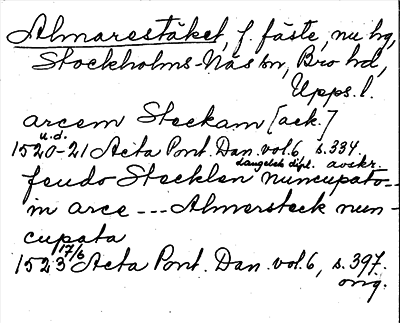 Almarestäket, f. fäste, nu hg,
Stockholms-Näs sn, Bro hd,
Upps. l.
arcem Steckam [ack.]
u.d.
1520-21 Acta Pont. Dan. vol. 6, s. 334.
dipl. avskr.
feudo Stecklen nuncupato --
in arce --- Almersteck nun-
cupata
17/6
1523 Acta Pont. Dan. vol. 6, s. 397.
orig.